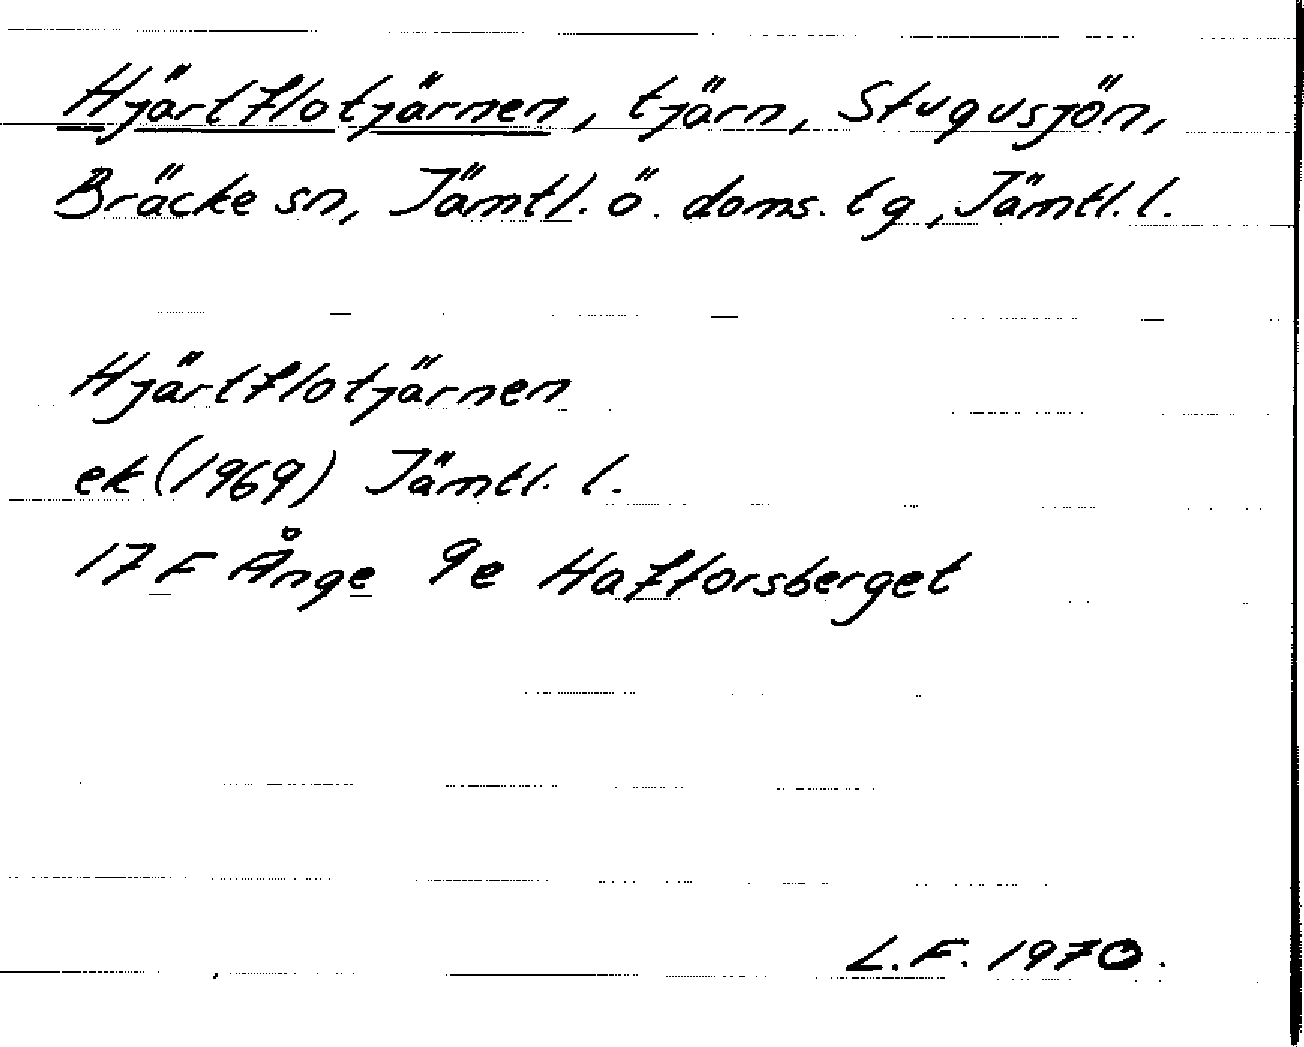 Hjärtflotjärnen, tjärn, Stugusjön,
Bräcke sn, Jämtl. ö. doms. tg, Jämtl. l.
Hjärtflotjärnen
ek (1969) Jämtl. l.
17 F Ånge 9e Hafforsberget
L.F. 1970.